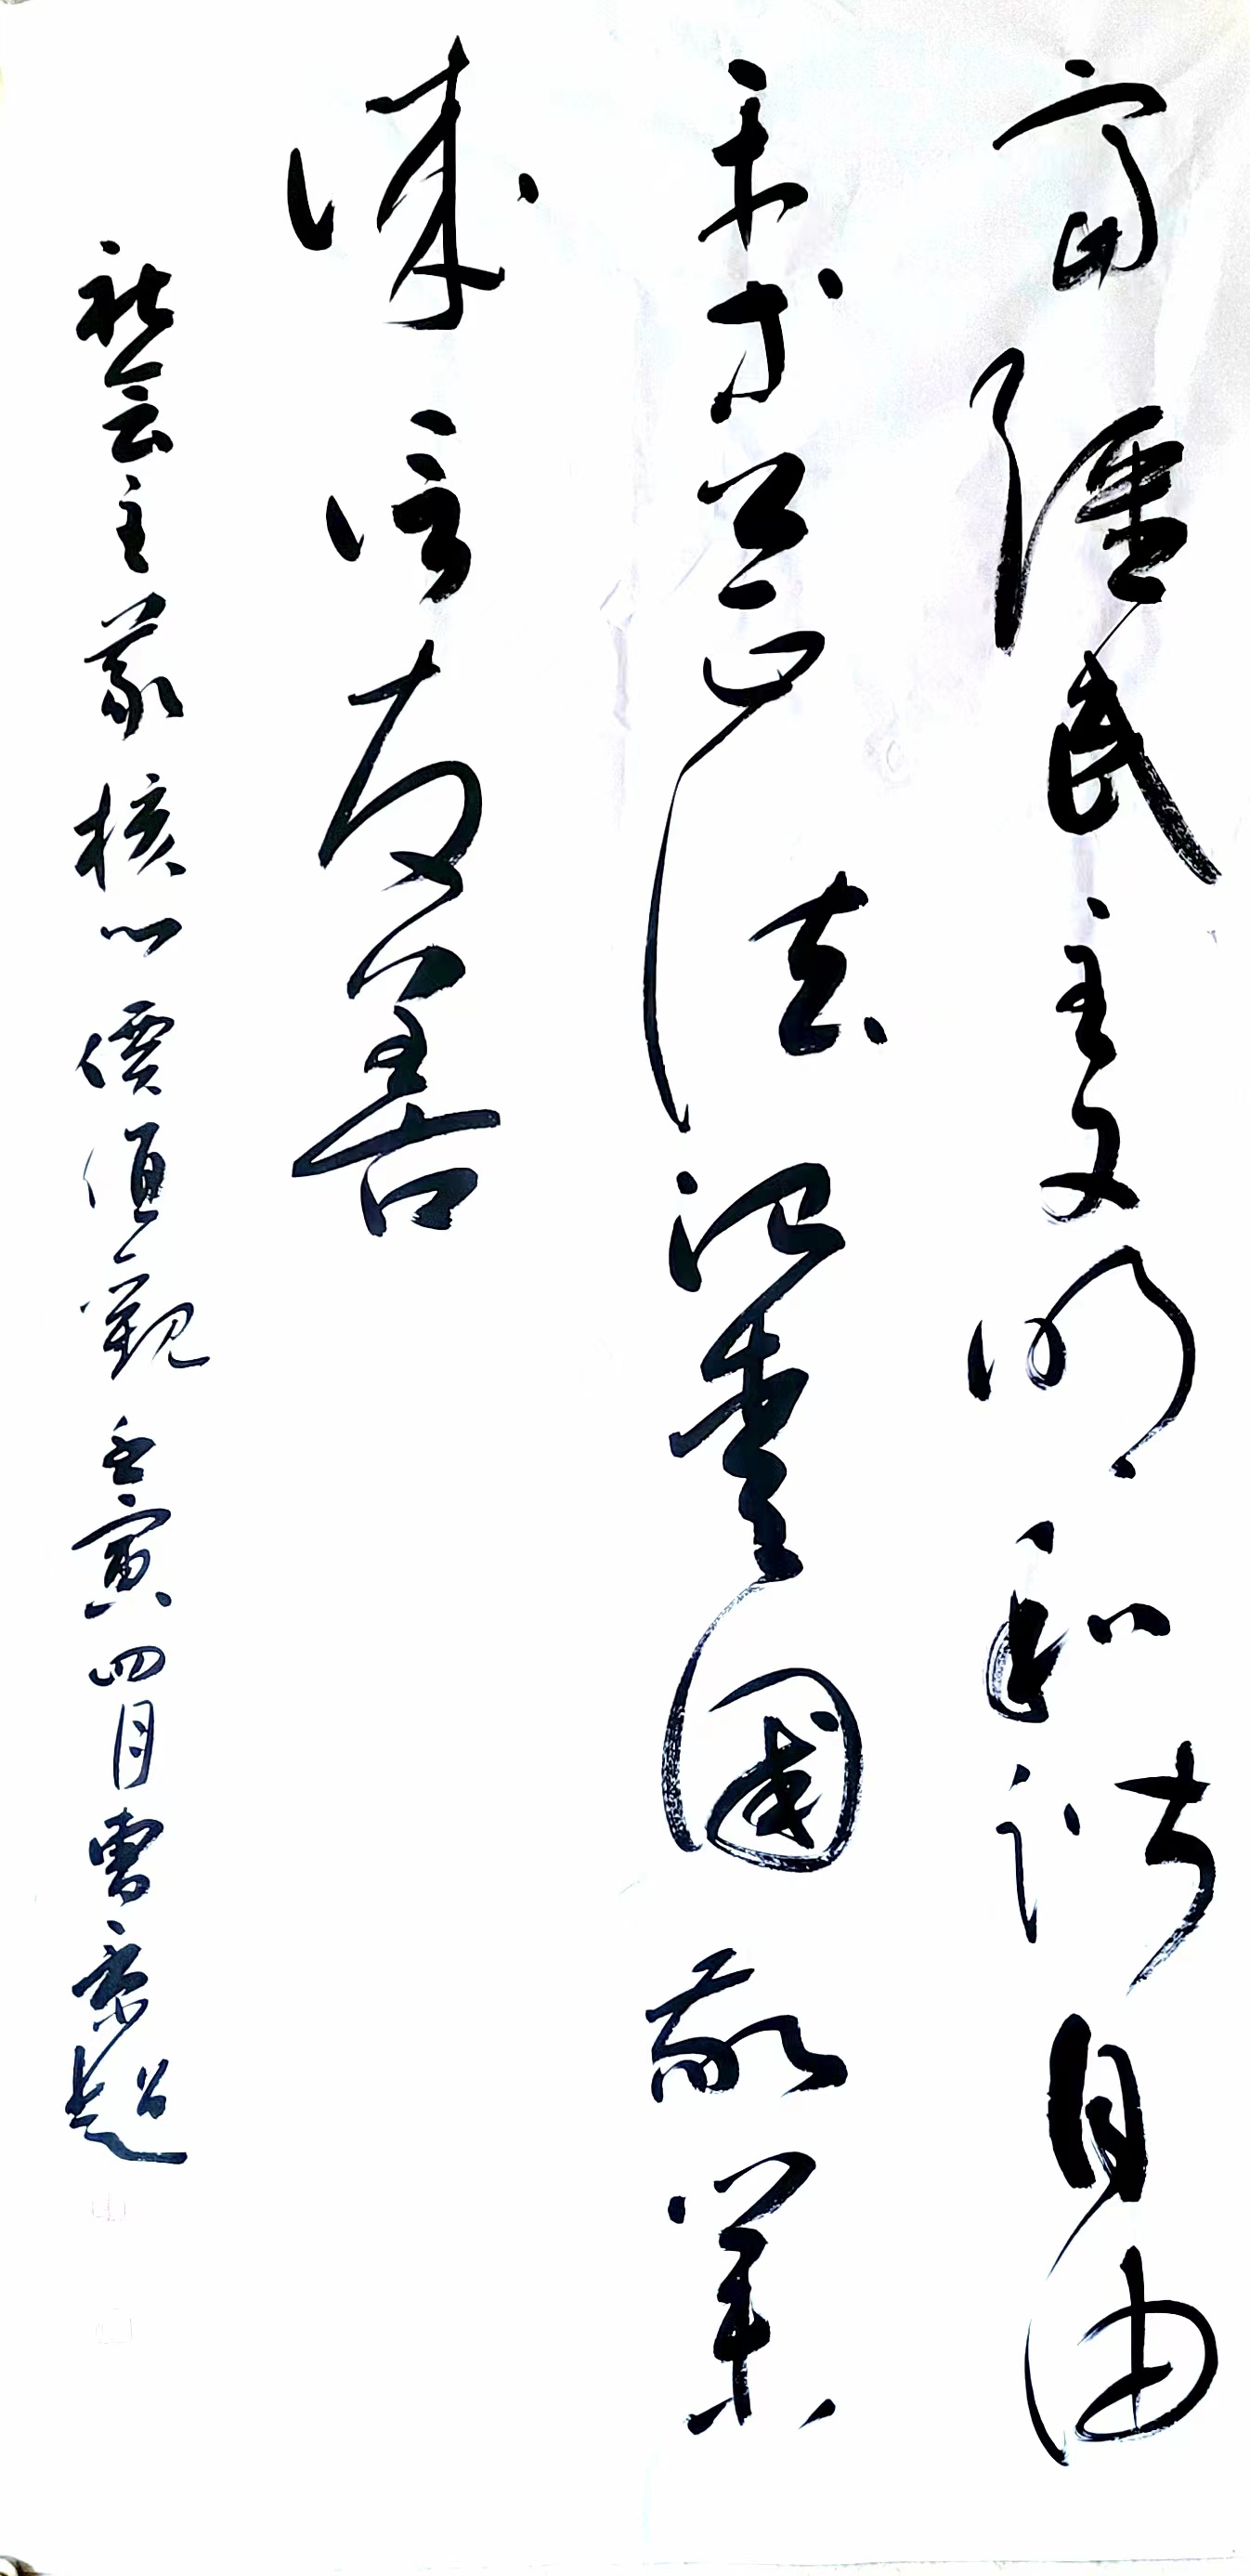 富彊民主文明和諧自由
平等公正法治愛國敬業
誠信友善
社会主義核心價值觀 壬寅四月曹 超